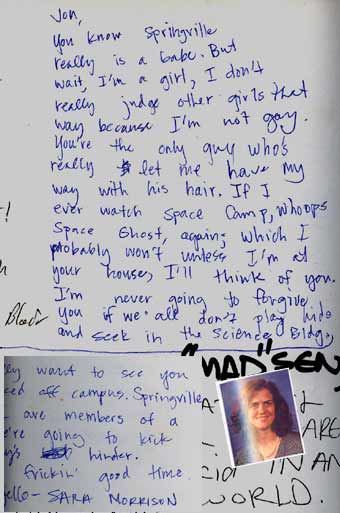 Jon,
You know Springville
really is a babe. But
wait, I'm a girl, I don't
really judge other girls that
way because I'm not gay.
You're the only guy who's
really let me have my
way with his hair. If I
ever watch Space Camp, whoops
Space Ghost, again; which I
probably won't unless I'm at
your house, I'll think of you.
I'm never going to forgive
you if we all don't play hide
and seek in the Science Bldg,
Black
"MAD"SEN
want to see you
off campus. Springville
are members of a
going to kick
hinder.
frickin' good time.
SARA MORRISON
ARE
IN AN
WORLD.